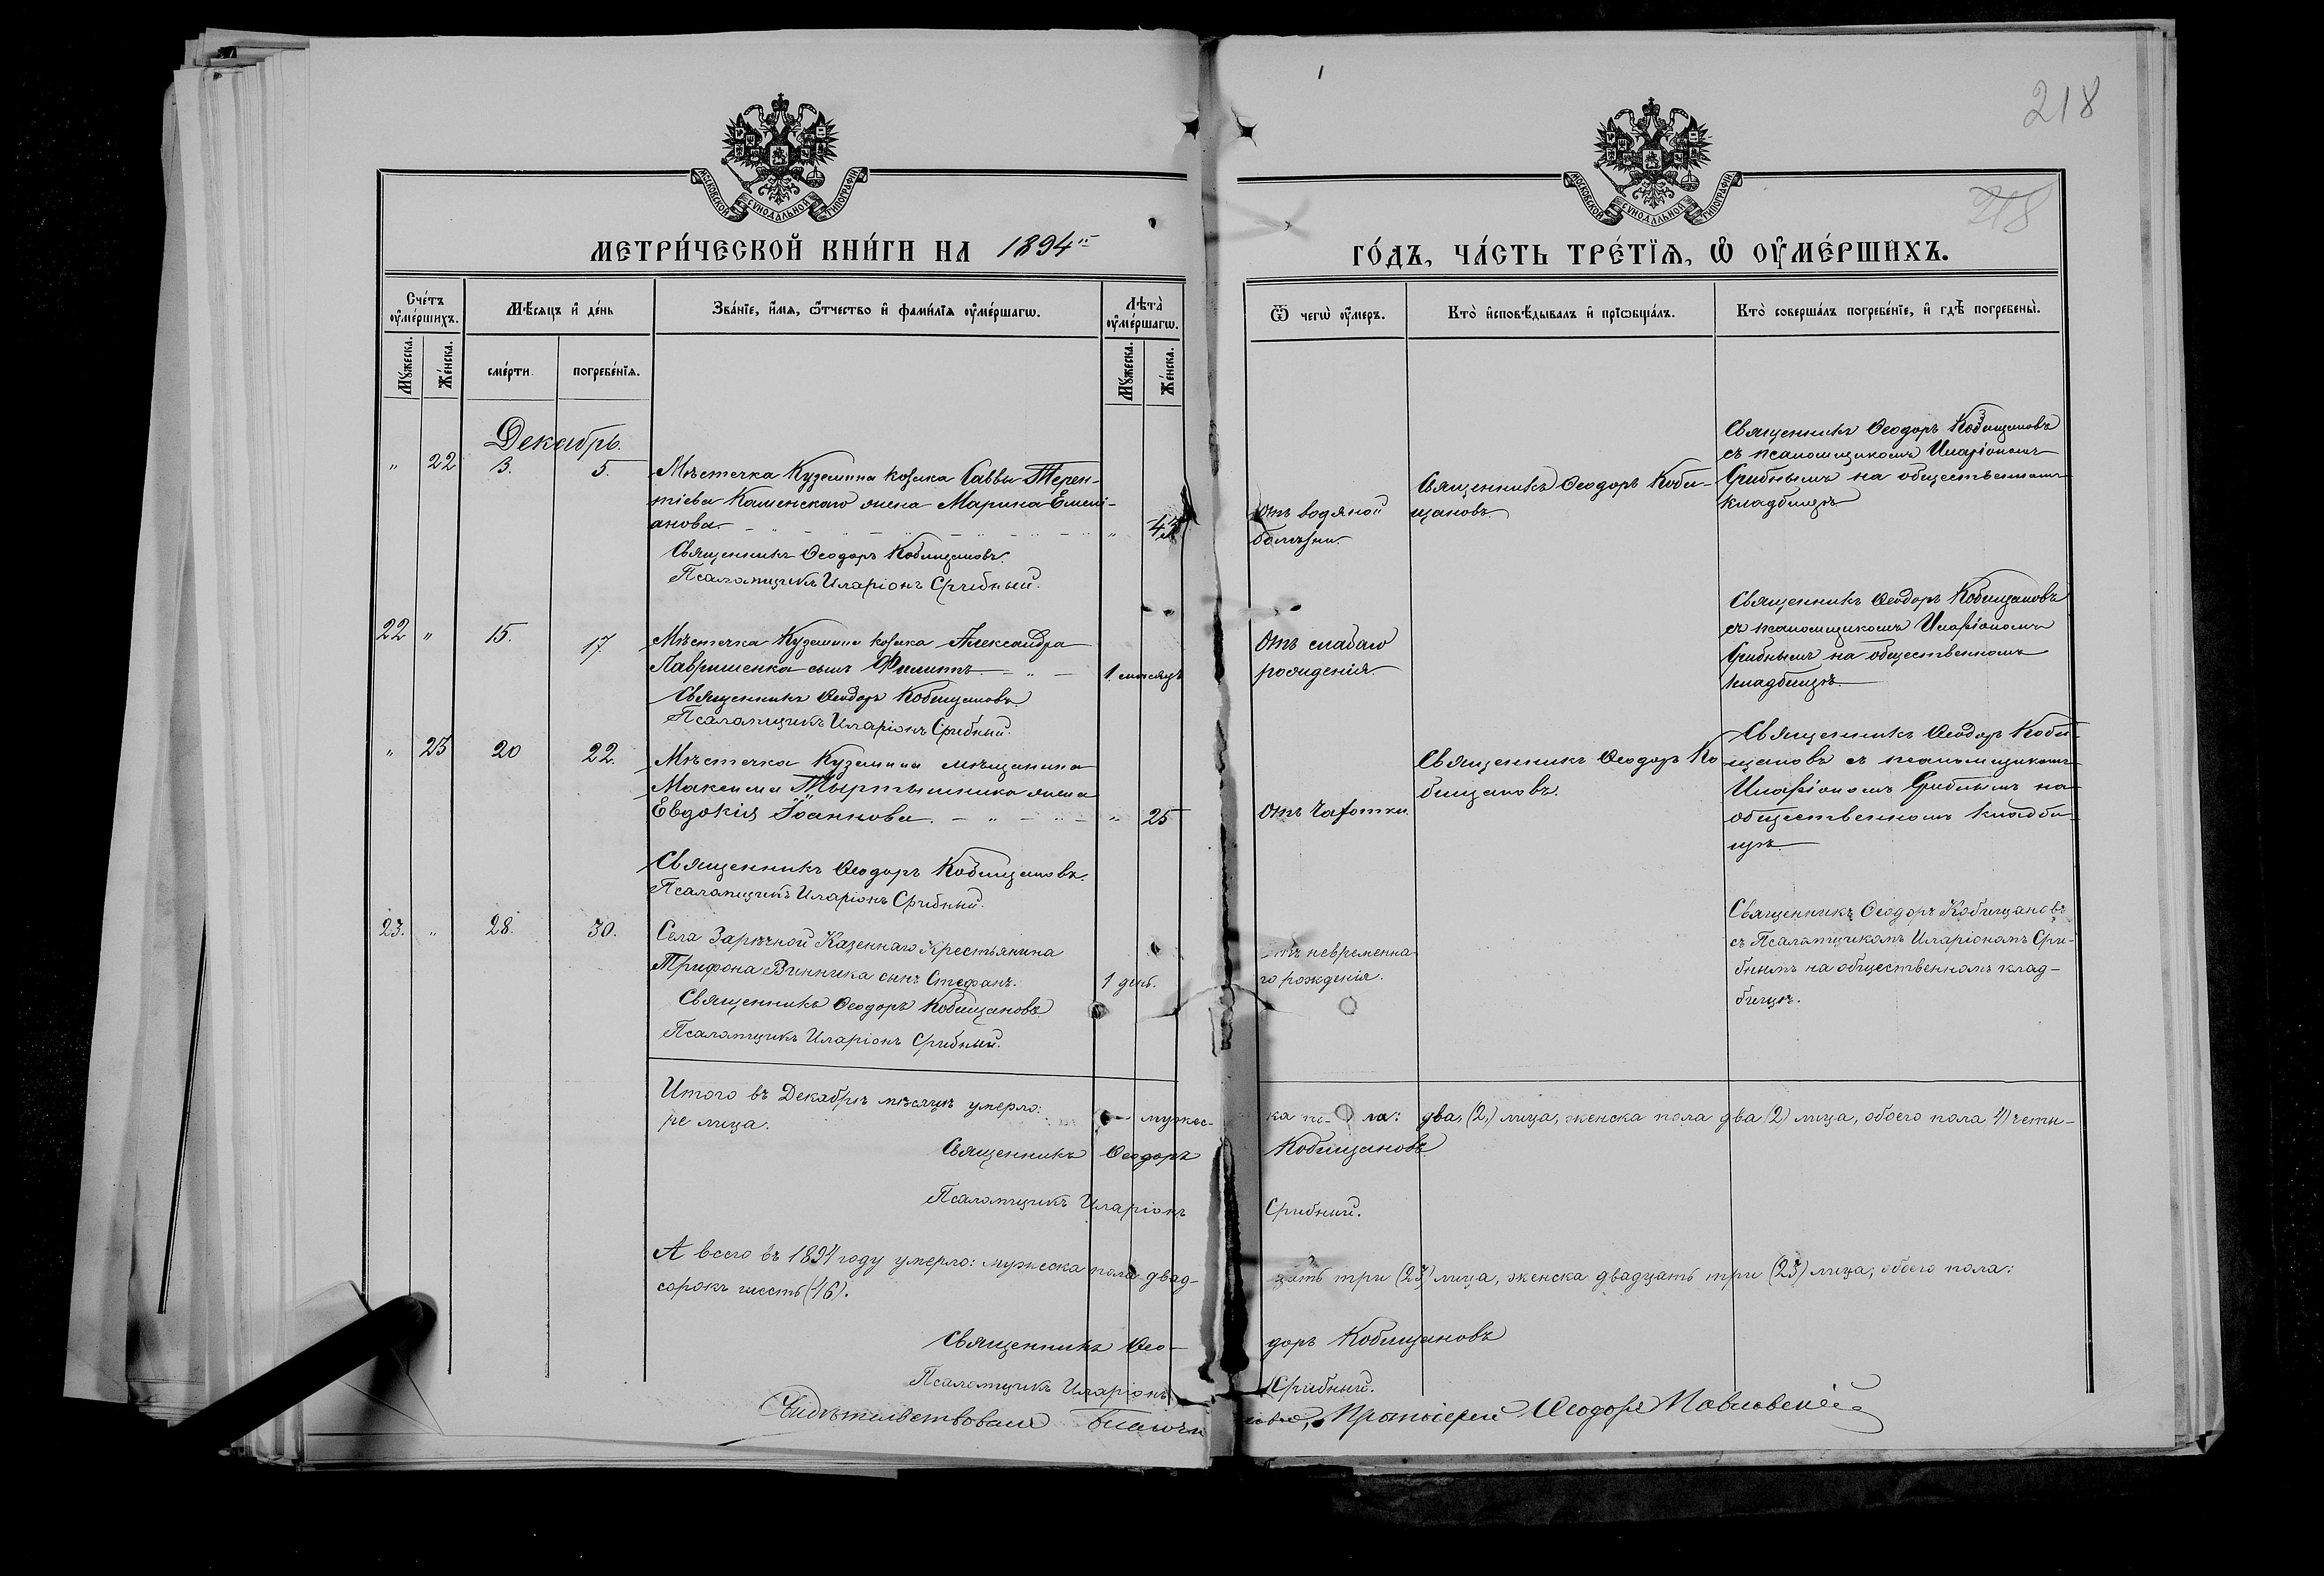 218
218
МОСКОВСКОЙ СУНОДАЛЬНОЙ ТИПОГРАФІИ
МОСКОВСКОЙ СУНОДАЛЬНОЙ ТИПОГРАФІИ
МЕТРИ́ЧЕСКОЙ КНИ́ГИ НА 1894й
ГО́ДЪ, ЧА́СТЬ ТРЕ́ТІѦ, Ѡ҆ ОУ҆МЕ́РШИХЪ.
Сче́тъ оу҆ме́ршихъ.
Мѣ́сяцъ и҆ де́нь
Зва́нїе, и҆́мя, ѻ҆́тчество и҆ фами́лїя оу҆ме́ршагѡ.
Лѣта̀ оу҆ме́ршагѡ.
Ѿ чегѡ̀ оу҆́меръ.
Кто̀ и҆сповѣ́дывалъ и҆ прїѡбща́лъ.
Кто̀ соверша́лъ погребе́нїе, и҆ гдѣ̀ погребены̀.
Мꙋ́жеска.
Же́нска.
сме́рти
погребе́нїя.
Мꙋ́жеска.
Же́нска.
Декабрь.
" 22 3. 5.
Мѣстечка Куземина козака Саввы Терен-
тіева Каменскаго жена Марина Емелі-
анова.
"
Священникъ Ѳеодоръ Кобищановъ.
Псаломщикъ Иларіонъ Срибный.
Отъ водяной
болѣзни.
Священникъ Ѳеодоръ Коби-
щановъ.
Священникъ Ѳеодоръ Кобищановъ
съ псаломщикомъ Иларіономъ
Срибнымъ на общественномъ
кладбищѣ.
22 " 15. 17.
Мѣстечка Куземина козака Александра
Лавришенка сынъ Филиппъ.
1 мѣсяцъ
Священникъ Ѳеодоръ Кобищановъ.
Псаломщикъ Иларіонъ Срибный.
Отъ слабаго
рожденія.
Священникъ Ѳеодоръ Кобищановъ
съ псаломщикомъ Иларіономъ
Срибнымъ на общественномъ
кладбищѣ.
" 23 20 22.
Мѣстечка Куземина мѣщанина
Максима Мыртышника жена
Евдокія Іоаннова.
" 25
Священникъ Ѳеодоръ Кобищановъ.
Псаломщикъ Иларіонъ Срибный.
Отъ чахотки.
Священникъ Ѳеодоръ Ко
бищановъ.
Священникъ Ѳеодоръ Коби-
щановъ съ псаломщикомъ
Иларіономъ Срибнымъ на
общественномъ кладби-
щѣ.
23. " 28. 30.
Села Зарѣчной Казеннаго Крестьянина
Трифона Винника сынъ Стефанъ.
1 день.
Священникъ Ѳеодоръ Кобищановъ
Псаломщикъ Иларіонъ Срибный.
отъ невременна
го рожденія.
Священникъ Ѳеодоръ Кобищановъ
съ Псаломщикомъ Иларіономъ Сри-
бнымъ на общественномъ клад-
бищѣ.
Итого въ Декабрѣ мѣсяцѣ умерло: мужес-ка по-ла: два, (2,) лица, женска пола два (2) лица, обоего пола 4) четы-
ре лица.
Священникъ Ѳеодоръ Кобищановъ
Псаломщикъ Иларіонъ Срибный.
А всего въ 1894 году умерло: мужеска пола двад-цать три (23) лица, женска двадцать три (23) лица, обоего пола:
сорокъ шесть (46).
Священникъ Ѳео-доръ Кобищановъ
Псаломщикъ Иларіонъ Срибный.
Свидѣтельствовалъ Протоіерей Ѳеодоръ Павловскій